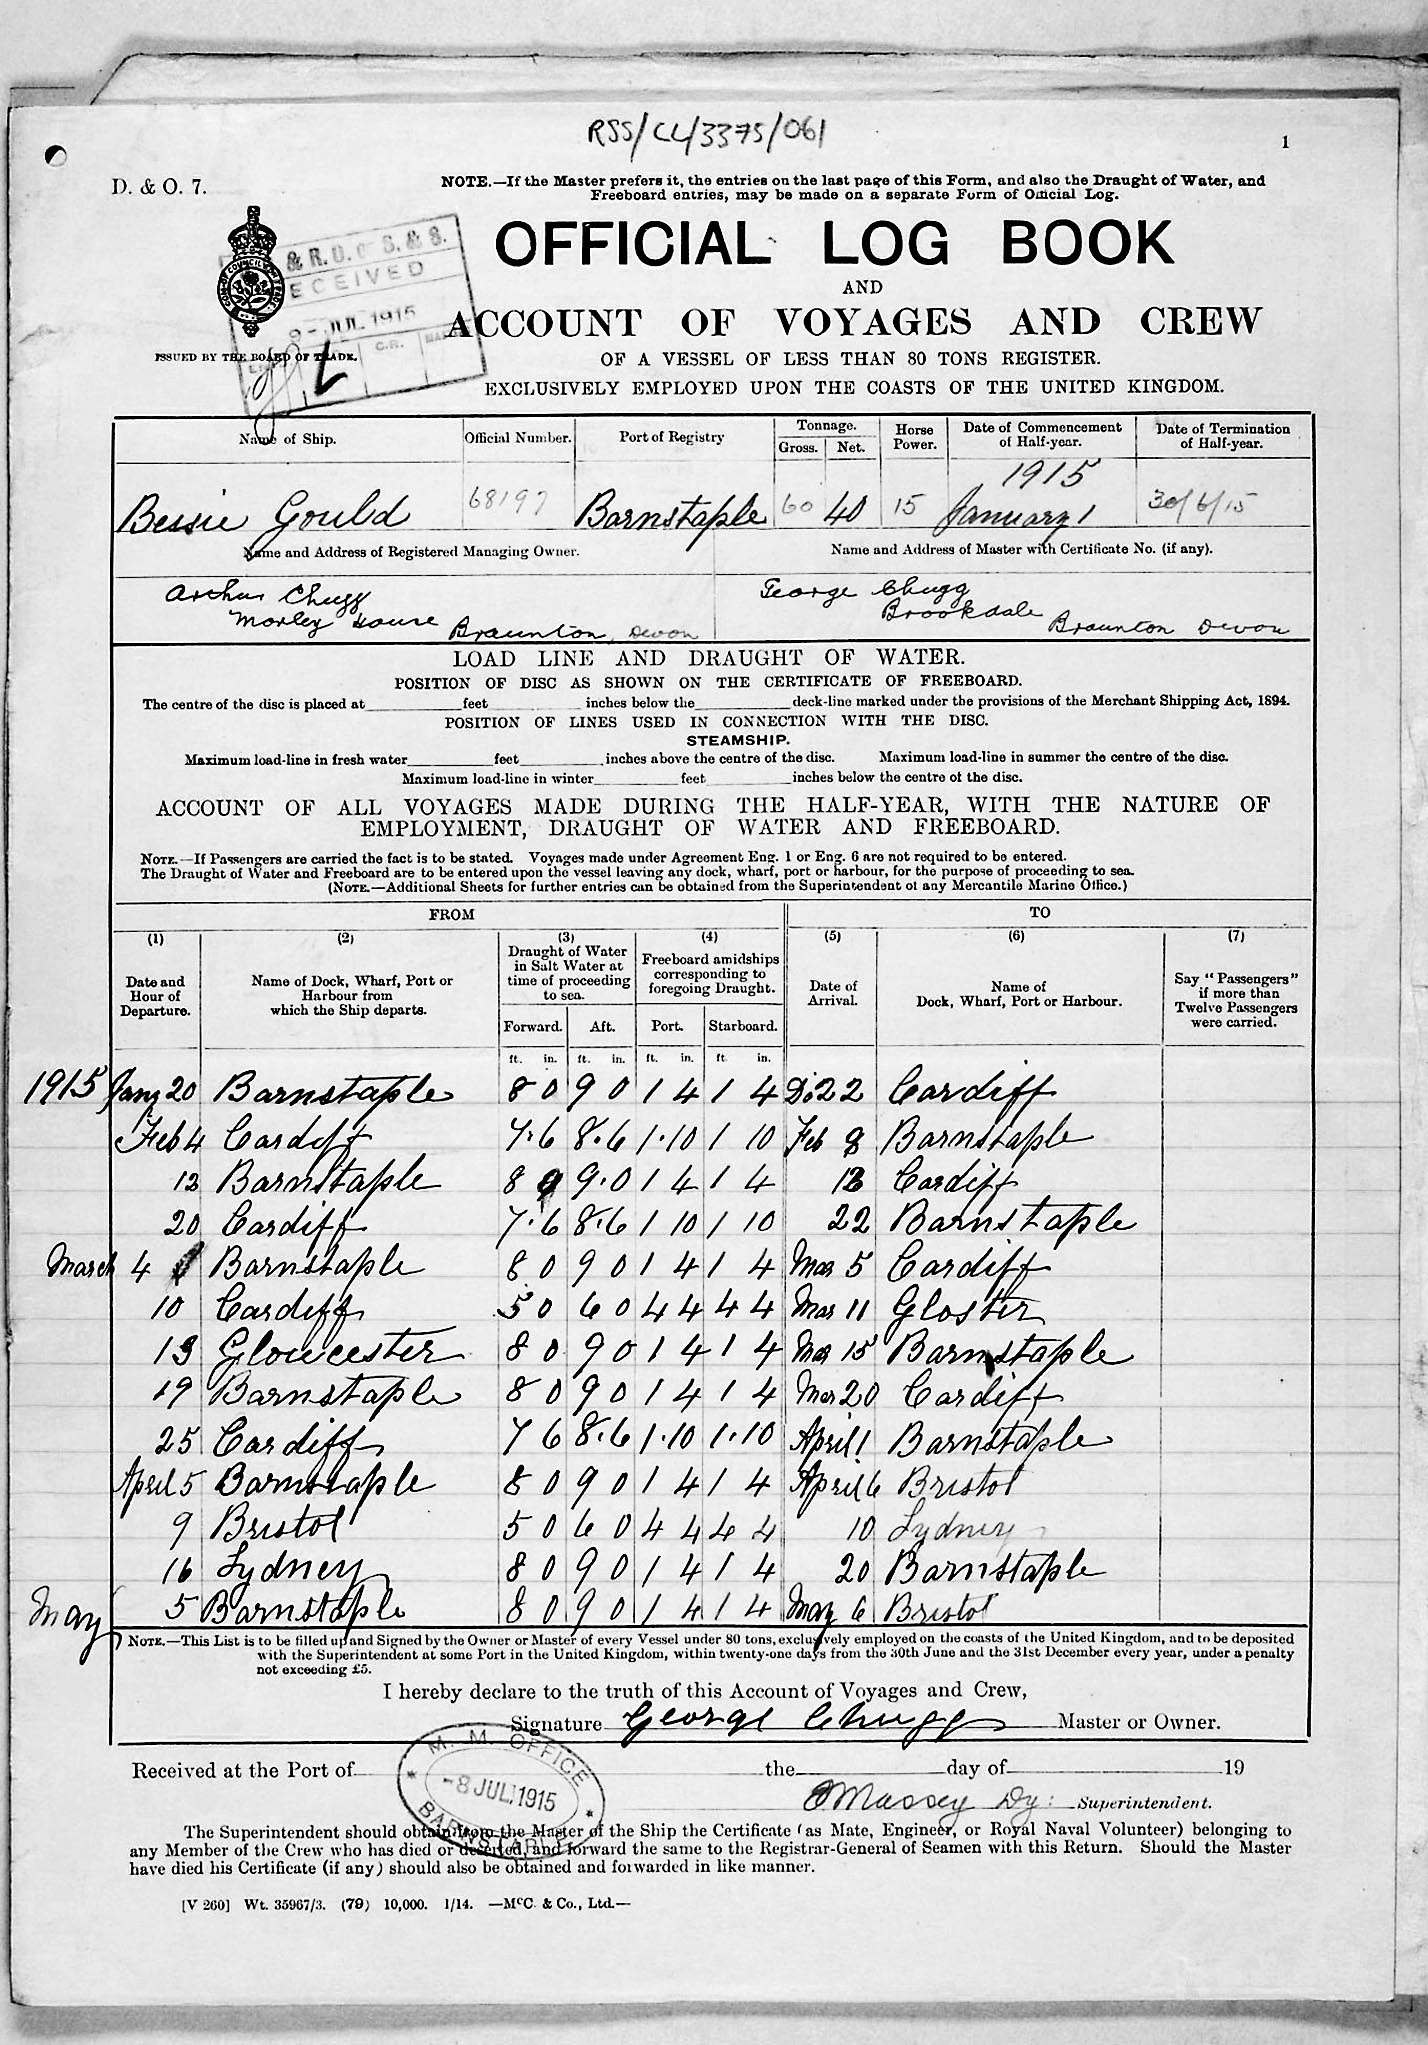 RSS/CL/3375/061
1
D. & O. 7.
NOTE.—If the Master prefers it, the entries on the last page of this Form, and also the Draught of Water, and
Freeboard entries, may be made on a separate Form of Official Log.
& R.D. of S. & S.
RECEIVED
8- JUL 1915
C.R.
ISSUED BY THE BOARD OF TRADE.
OFFICIAL LOG BOOK
AND
ACCOUNT OF VOYAGES AND CREW
OF A VESSEL OF LESS THAN 80 TONS REGISTER.
EXCLUSIVELY EMPLOYED UPON THE COASTS OF THE UNITED KINGDOM.
Name of Ship. Official Number. Port of Registry Tonnage. Gross. Net. Horse Power. Date of Commencement of Half-year. Date of Termination of Half-year.
1915
Bessie Gould 68197 Barnstaple 60 40 15 January 1 30/6/15
Name and Address of Registered Managing Owner. Name and Address of Master with Certificate No. (if any).
Arthur Chugg George Chugg
Morley House Braunton, Devon Brookdale Braunton Devon
LOAD LINE AND DRAUGHT OF WATER.
POSITION OF DISC AS SHOWN ON THE CERTIFICATE OF FREEBOARD.
The centre of the disc is placed at feet inches below the deck-line marked under the provisions of the Merchant Shipping Act, 1894.
POSITION OF LINES USED IN CONNECTION WITH THE DISC.
STEAMSHIP.
Maximum load-line in fresh water feet inches above the centre of the disc. Maximum load-line in summer the centre of the disc.
Maximum load-line in winter feet inches below the centre of the disc.
ACCOUNT OF ALL VOYAGES MADE DURING THE HALF-YEAR, WITH THE NATURE OF
EMPLOYMENT, DRAUGHT OF WATER AND FREEBOARD.
NOTE.—If Passengers are carried the fact is to be stated. Voyages made under Agreement Eng. 1 or Eng. 6 are not required to be entered.
The Draught of Water and Freeboard are to be entered upon the vessel leaving any dock, wharf, port or harbour, for the purpose of proceeding to sea.
(NOTE.—Additional Sheets for further entries can be obtained from the Superintendent of any Mercantile Marine Office.)
FROM TO
(1) (2) (3) (4) (5) (6) (7)
Date and Hour of Departure.
Name of Dock, Wharf, Port or Harbour from which the Ship departs.
Draught of Water in Salt Water at time of proceeding to sea.
Freeboard amidships corresponding to foregoing Draught.
Date of Arrival.
Name of Dock, Wharf, Port or Harbour.
Say "Passengers" if more than Twelve Passengers were carried.
Forward. Aft. Port. Starboard.
ft. in. ft. in. ft. in. ft. in.
1915 Jany 20 Barnstaple 8 0 9 0 1 4 1 4 Do 22 Cardiff
Feb 4 Cardiff 7.6 8.6 1.10 1 10 Feb 8 Barnstaple
12 Barnstaple 8 0 9.0 1 4 1 4 13 Cardiff
20 Cardiff 7.6 8.6 1 10 1 10 22 Barnstaple
March 4 Barnstaple 8 0 9 0 1 4 1 4 Mar 5 Cardiff
10 Cardiff 5 0 6 0 4 4 4 4 Mar 11 Gloster
13 Gloucester 8 0 9 0 1 4 1 4 Mar 15 Barnstaple
19 Barnstaple 8 0 9 0 1 4 1 4 Mar 20 Cardiff
25 Cardiff 7 6 8.6 1.10 1.10 April 1 Barnstaple
April 5 Barnstaple 8 0 9 0 1 4 1 4 April 6 Bristol
9 Bristol 5 0 6 0 4 4 4 4 10 Lydney
16 Lydney 8 0 9 0 1 4 1 4 20 Barnstaple
May 5 Barnstaple 8 0 9 0 1 4 1 4 May 6 Bristol
NOTE.—This List is to be filled up and Signed by the Owner or Master of every Vessel under 80 tons, exclusively employed on the coasts of the United Kingdom, and to be deposited
with the Superintendent at some Port in the United Kingdom, within twenty-one days from the 30th June and the 31st December every year, under a penalty
not exceeding £5.
I hereby declare to the truth of this Account of Voyages and Crew,
Signature George Chugg Master or Owner.
M. M. OFFICE
-8 JUL. 1915
BARNSTAPLE
Received at the Port of the day of 19
Massey Dy: Superintendent.
The Superintendent should obtain from the Master of the Ship the Certificate (as Mate, Engineer, or Royal Naval Volunteer) belonging to
any Member of the Crew who has died or deserted, and forward the same to the Registrar-General of Seamen with this Return. Should the Master
have died his Certificate (if any) should also be obtained and forwarded in like manner.
[V 260] Wt. 35967/3. (79) 10,000. 1/14. —McC. & Co., Ltd.—